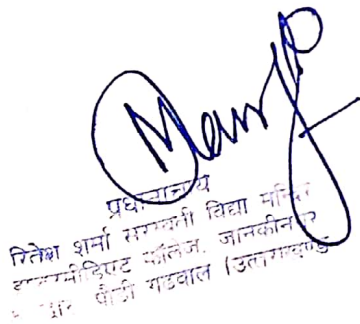 प्रधानाचार्य
रितेश शर्मा सरस्वती विद्या मन्दिर
इण्टरमीडिएट कॉलेज, जानकीनगर
पौड़ी गढ़वाल (उत्तराखण्ड)